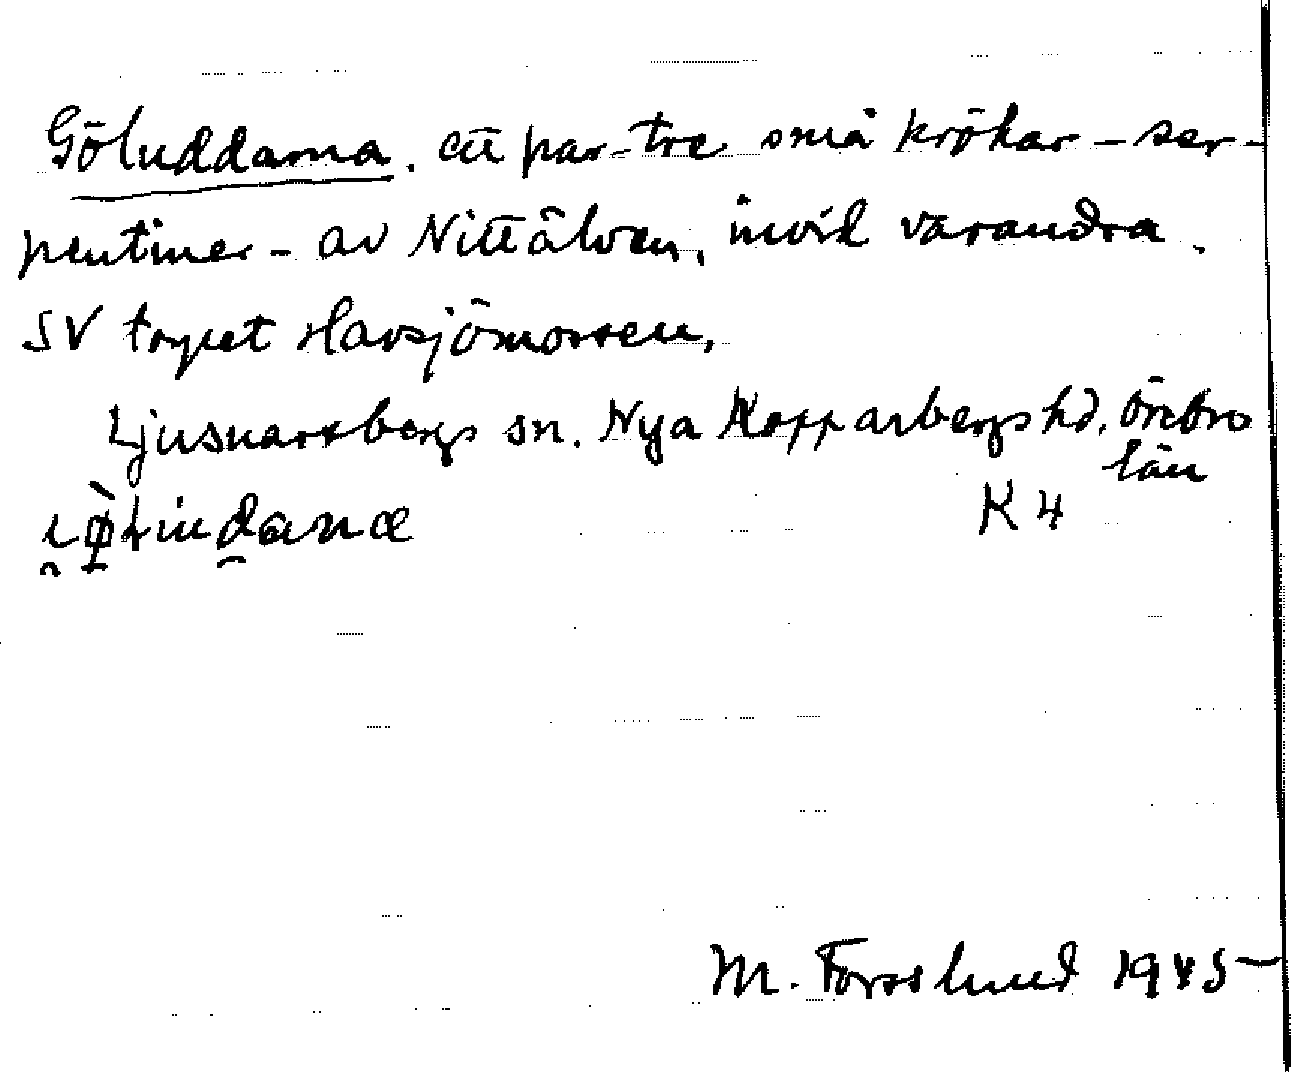 Göluddarna. ett par-tre små krökar – ser-
pentiner – av Nittälven, invid varandra.
SV torpet Havsjömossen,
Ljusnarsbergs sn. Nya Kopparbergs hd, Örebro
län
K 4
M. Forsslund 1945